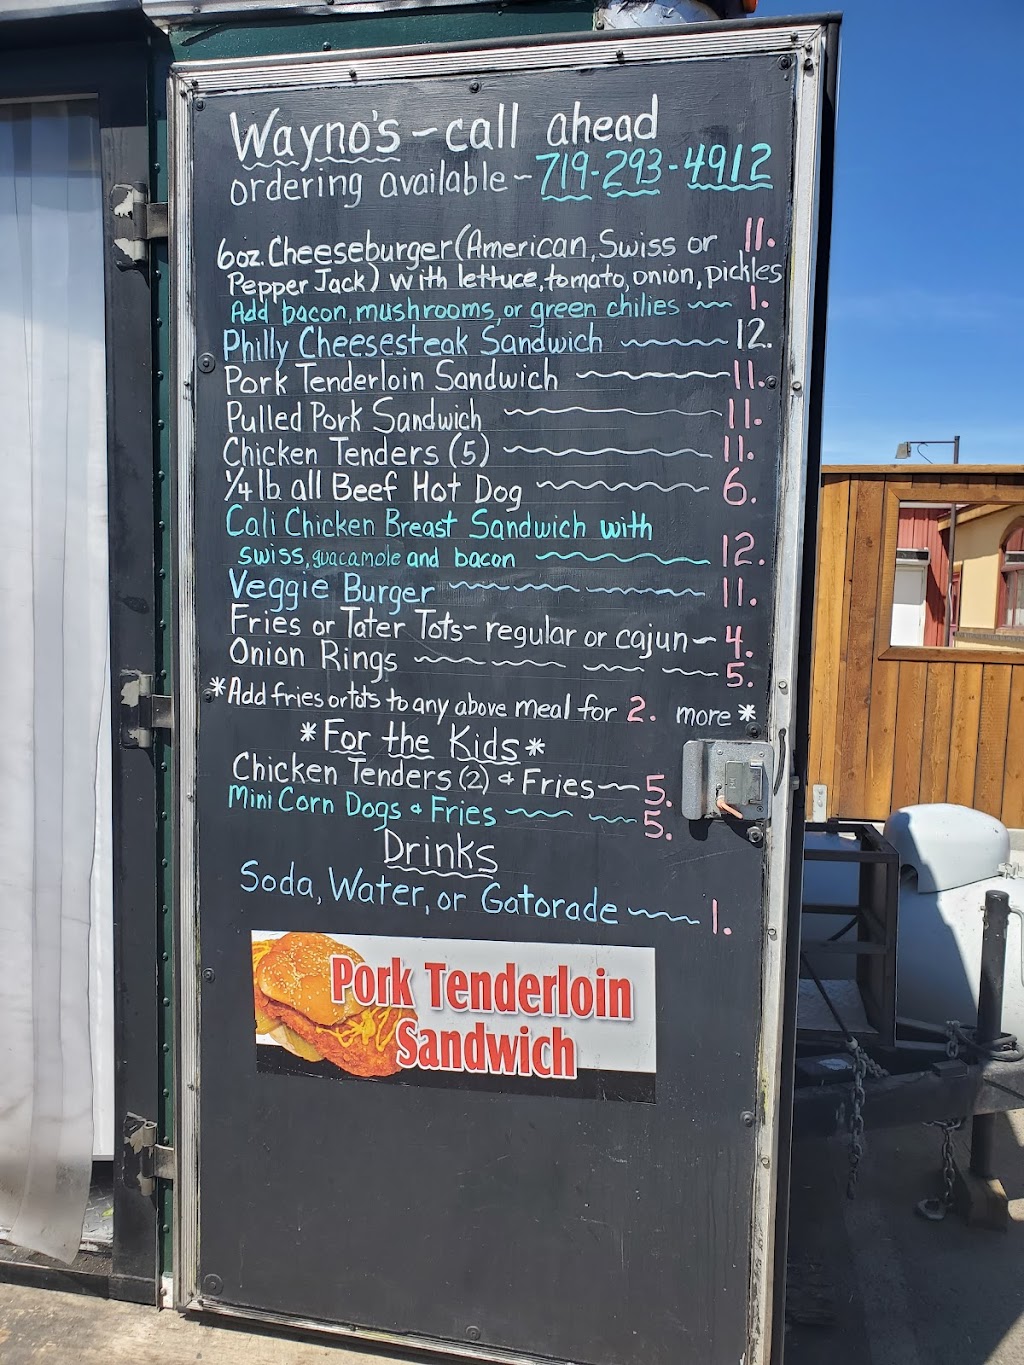 Wayno's - call ahead
ordering available - 719-293-4912
6oz. Cheeseburger (American, Swiss or 11.
Pepper Jack) with lettuce, tomato, onion, pickles
Add bacon, mushrooms, or green chilies 1.
Philly Cheesesteak Sandwich 12.
Pork Tenderloin Sandwich 11.
Pulled Pork Sandwich 11.
Chicken Tenders (5) 11.
1/4 lb. all Beef Hot Dog 6.
Cali Chicken Breast Sandwich with
swiss, guacamole and bacon 12.
Veggie Burger 11.
Fries or Tater Tots - regular or cajun 4.
Onion Rings 5.
*Add fries or tots to any above meal for 2. more*
*For the Kids*
Chicken Tenders (2) & Fries 5.
Mini Corn Dogs & Fries 5.
Drinks
Soda, Water, or Gatorade 1.
Pork Tenderloin
Sandwich